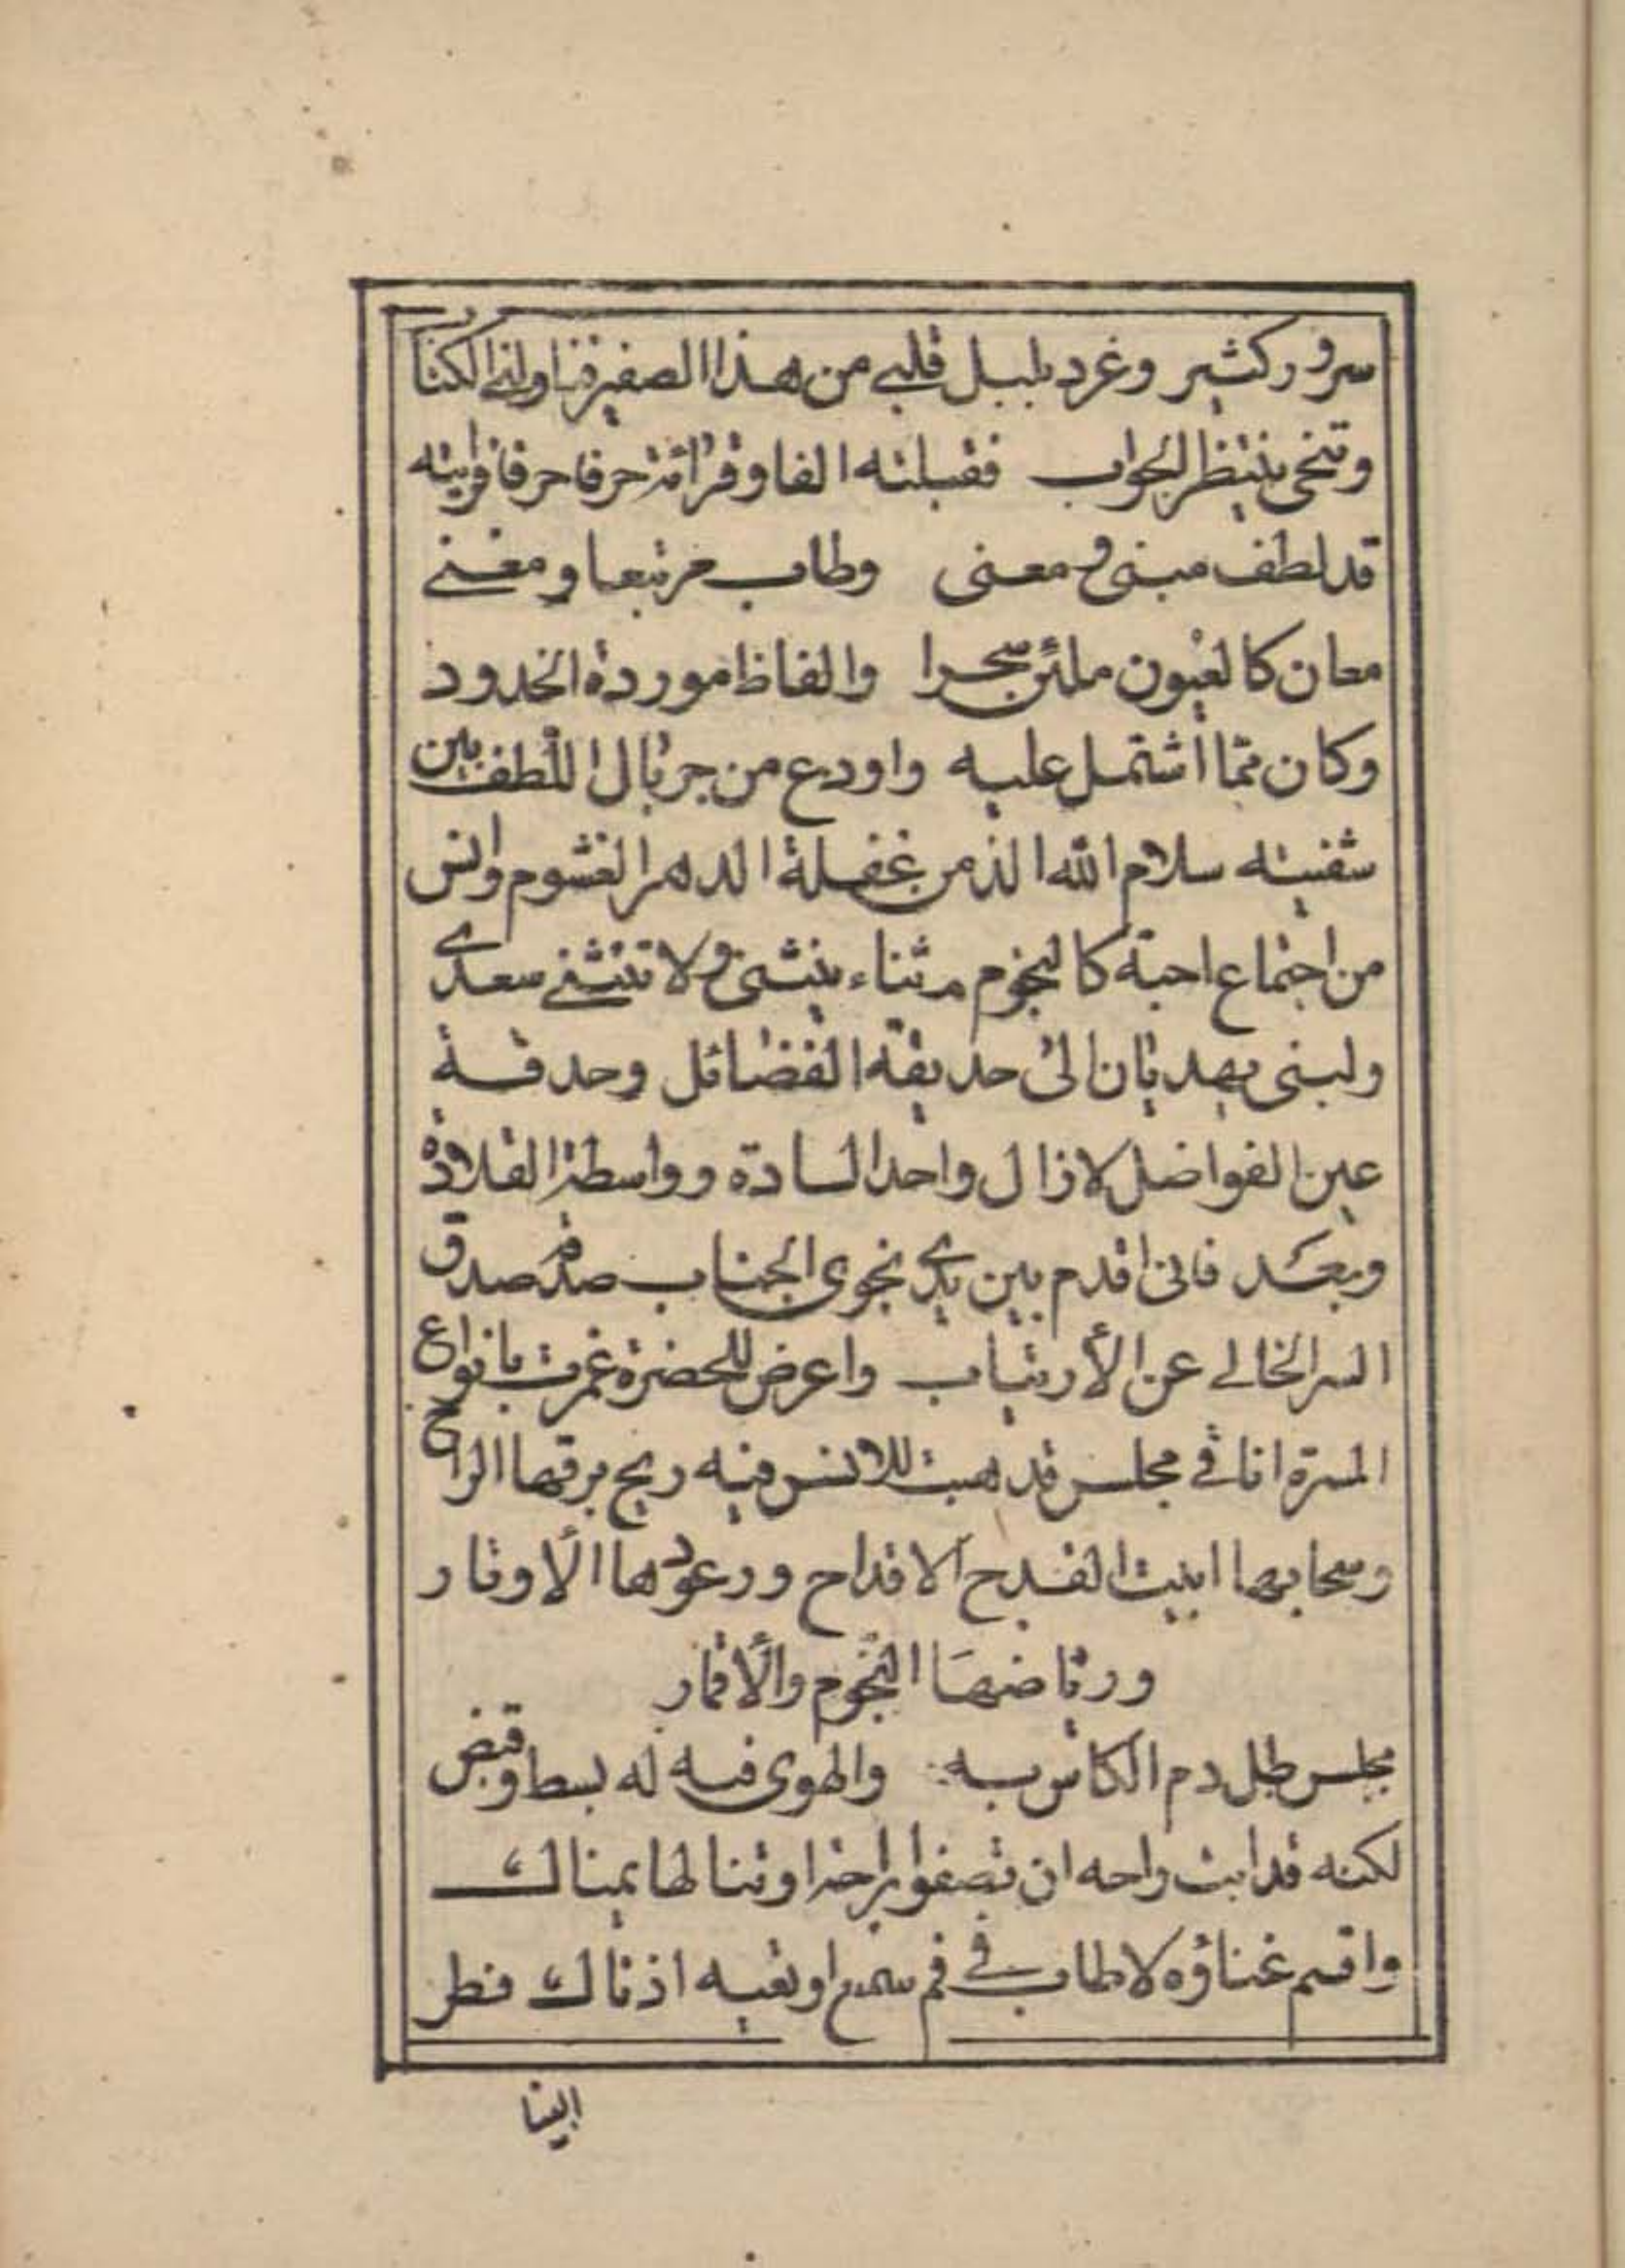 سرور كثير وغرد بلبل قلبي من هذا الصفير فناولني الكتاب
وتنحى ينتظر الجواب فقبلته الفا وقرأته حرفا حرفا فرايته
قد لطف مبنى ومعنى وطاب مرتبعا ومغنى
معان كالعيون ملئن سحرا والفاظ موردة الخدود
وكان مما أشتمل عليه واودع من جريال اللطف بين
شفتيه سلام الله الذ من غفلة الدهر الغشوم وانس
من اجتماع احبة كالنجوم مرثناء ينثنى ولا تنثني سعدى
ولبنى يهديان الى حديقة الفضائل وحدقة
عين الفواضل لا زال واحد السادة وواسطة القلادة
وبعد فانى اقدم بين يدي نجوى الجناب صدقة صدق
السر الخالي عن الأرتياب واعرض للحضرة غمرت بانواع
المسرة انا في مجلس قد هبت للانس فيه ريح برقها الراح
وسحابها ابنيت القدح الاقداح ورعودها الأوتار
ورياضها النجوم والأقمار
مجلس طل دم الكاس به والهوى فيه له بسط وقبض
لكنه قد ابت راحه ان تصفوا براحة او تنالها يمناك
واقسم غناؤه لا طاب في فم سمع او تعيه اذناك فطر
الينا